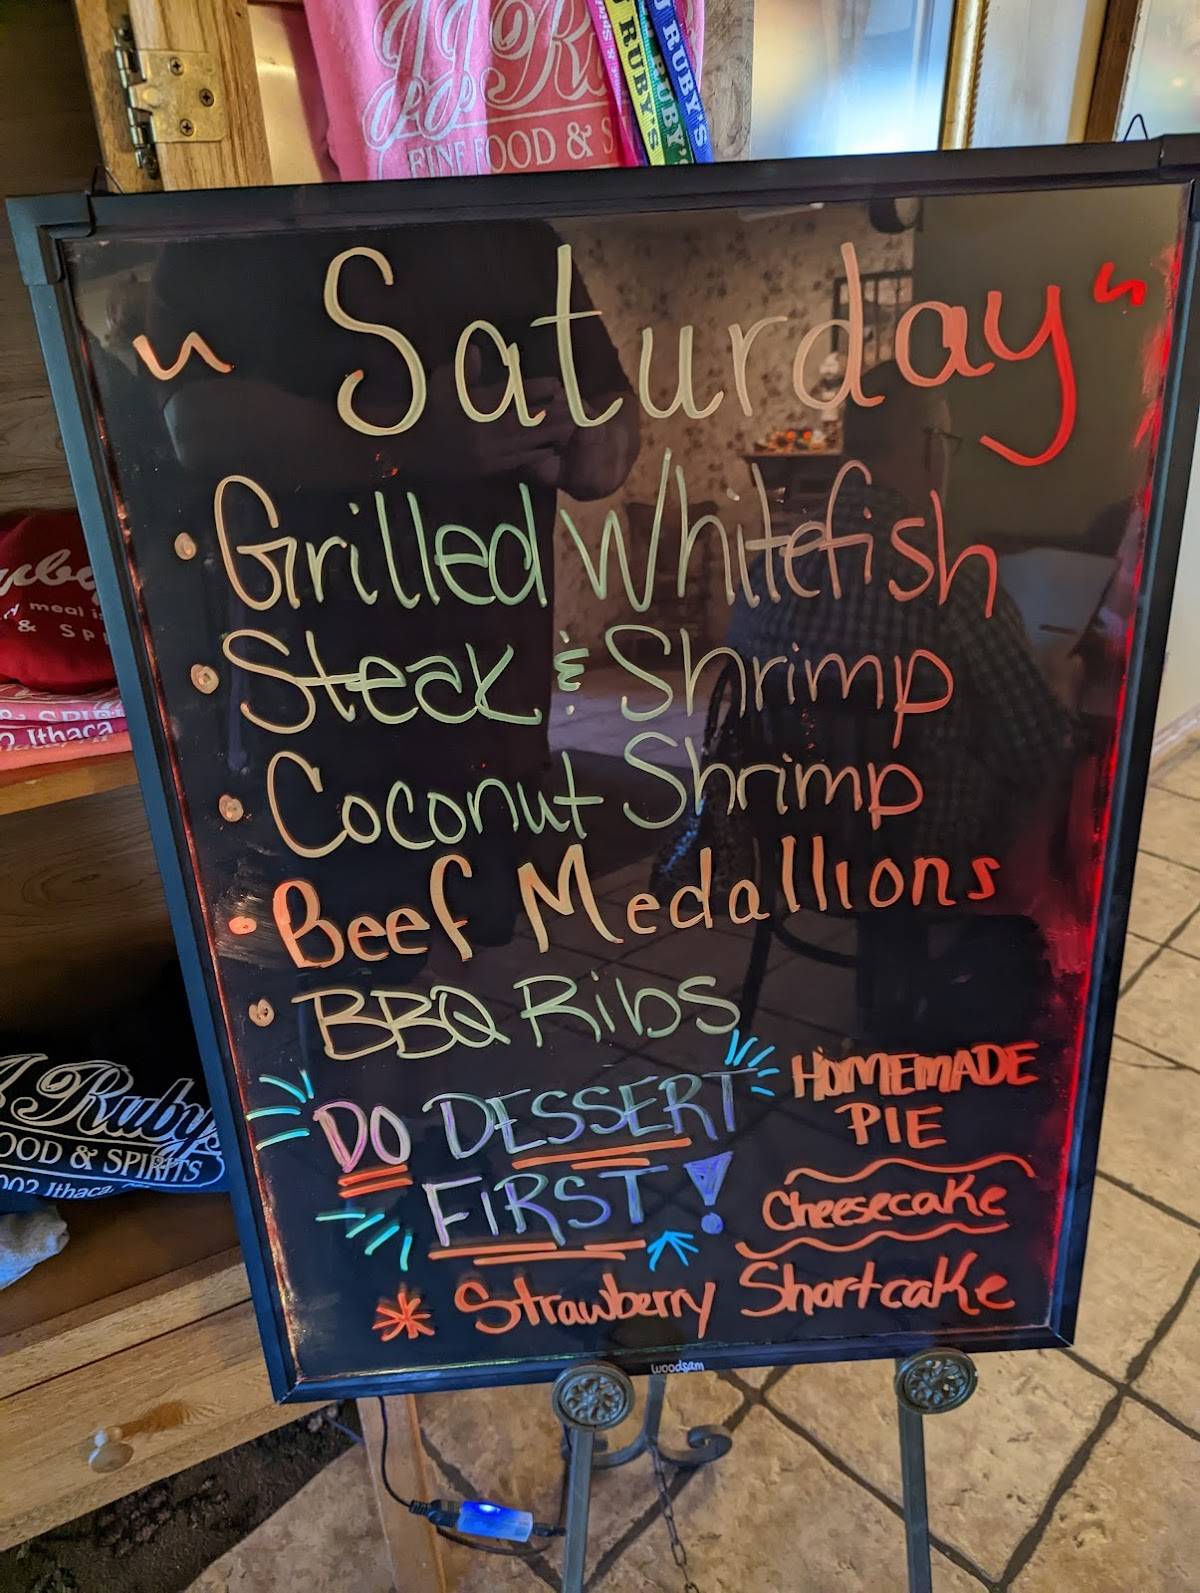 JJ Ru
FINE FOOD & S
J RUBY'S
RUBY'
J RUBY'S
~ Saturday ~
• Grilled Whitefish
• Steak & Shrimp
• Coconut Shrimp
• Beef Medallions
• BBQ Ribs
DO DESSERT
FIRST!
HOMEMADE
PIE
Cheesecake
* Strawberry Shortcake
woodsam
meal is
& SP
Ithaca
J Ruby's
OOD & SPIRITS
002 Ithaca,